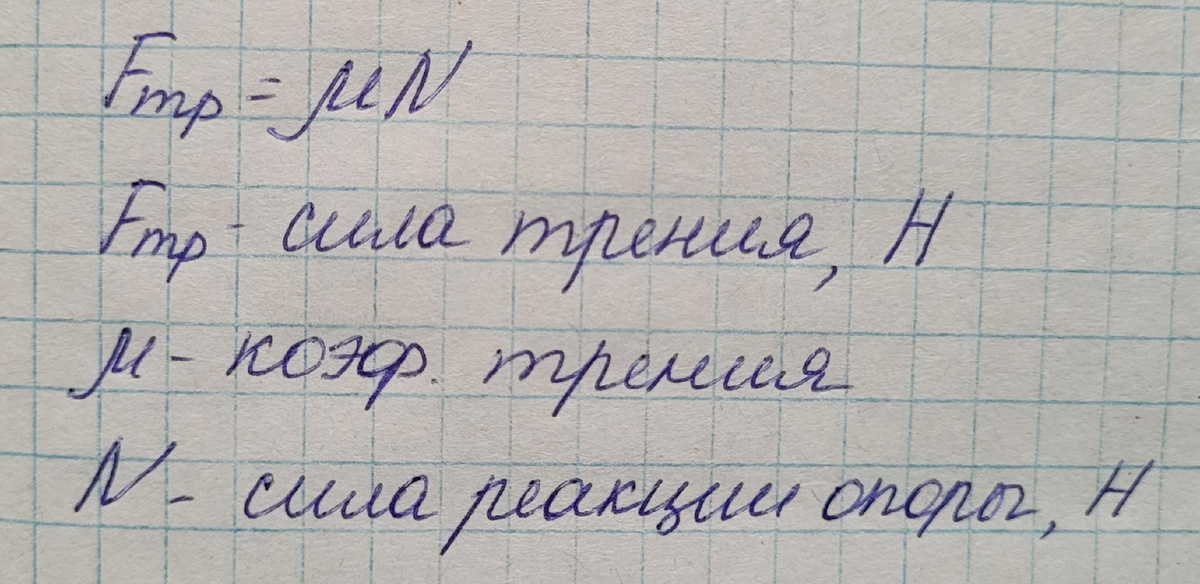 Fтр = μN
Fтр - сила трения, Н
μ - коэф. трения
N - сила реакции опоры, Н